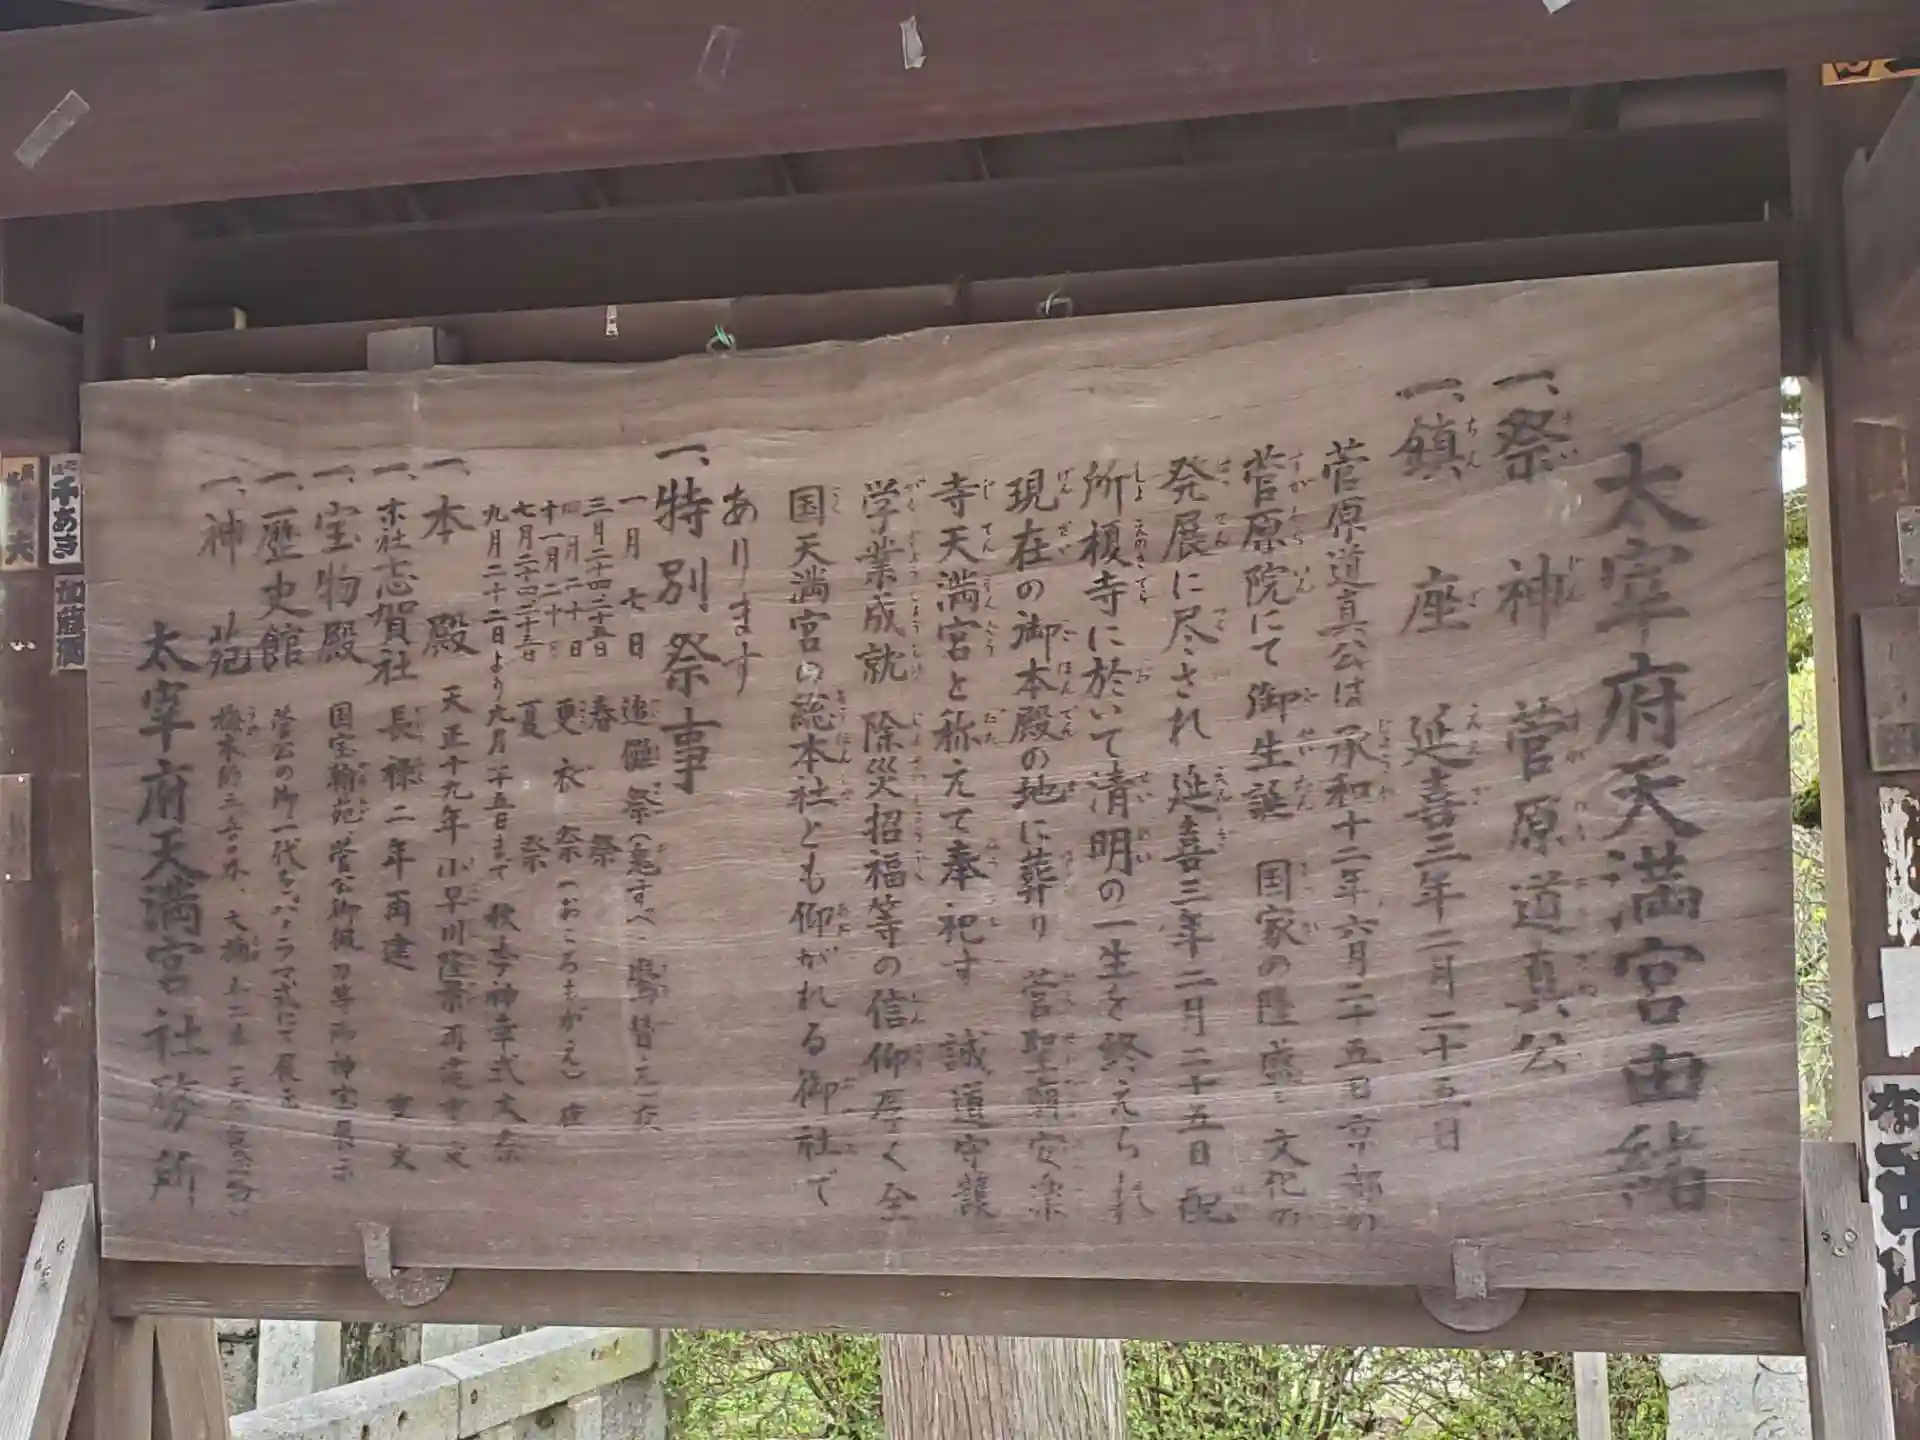 太宰府天満宮由緒
一、祭神 菅原道真公
一、鎮座 延喜三年二月二十五日
菅原道真公は承和十二年六月二十五日京都の
菅原院にて御生誕 国家の隆盛と文化の
発展に尽され 延喜三年二月二十五日配
所榎寺に於いて清明の一生を終えられ
現在の御本殿の地に葬り 菅聖廟安楽
寺天満宮と称えて奉祀す 誠道守護
学業成就 除災招福等の信仰厚く全
国天満宮の総本社とも仰がれる御社で
あります
一、特別祭事
一月七日 追儺祭(鬼すべ・鷽替え)夜
三月二十四、二十五日 春祭
四月二十日
十一月二十日 更衣祭(おころもがえ)夜
七月二十四、二十五日 夏祭
九月二十二日より九月二十五日まで 秋季神幸式大祭
一、本殿 天正十九年小早川隆景再建 重文
一、末社志賀社 長禄二年再建 重文
一、宝物殿 国宝翰苑、菅公御佩刀等御神宝展示
一、歴史館 菅公の御一代をパノラマ式にて展示
一、神苑 梅木約三
太宰府天満宮社務所
千あき
加藤
布